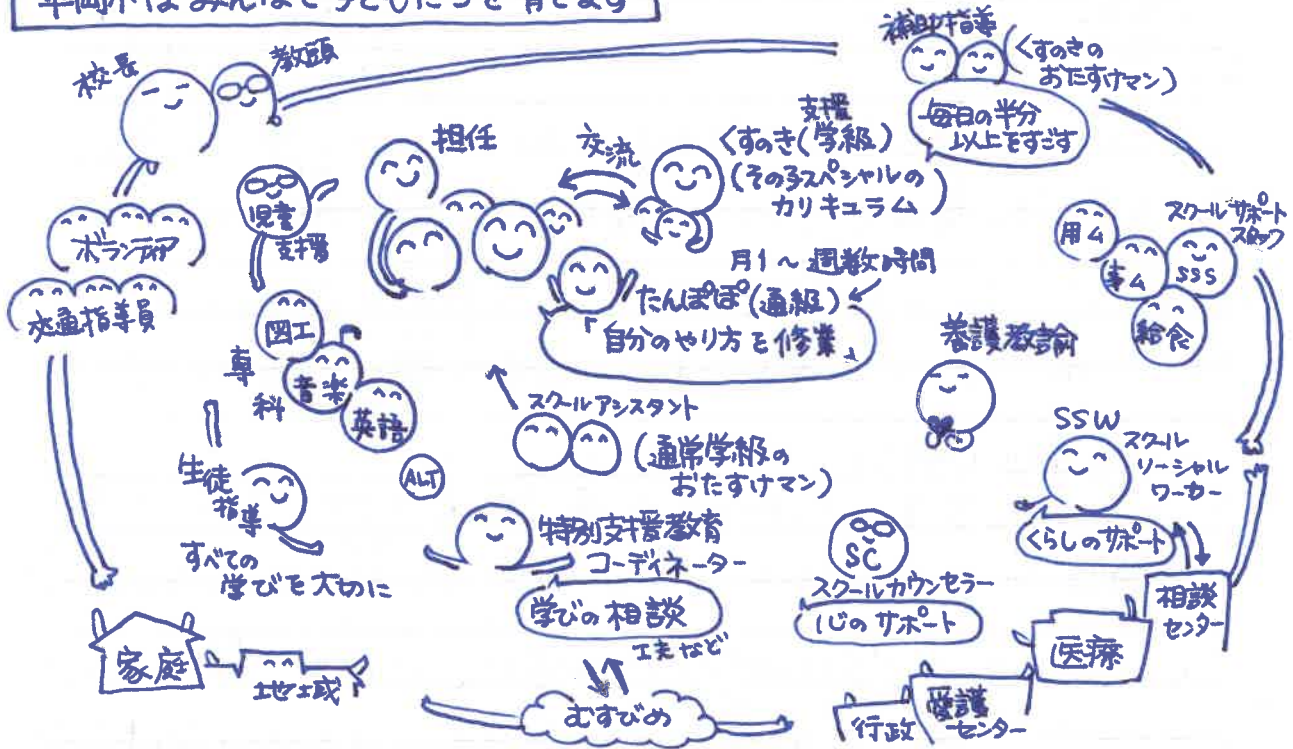 平岡小はみんなで子どもたちを育てます
校長
教頭
補助指導
(くすのきの
おたすけマン)
毎日の半分
以上をすごす
担任
交流
支援
くすのき(学級)
(その子スペシャルの
カリキュラム)
児童
支援
ボランティア
交通指導員
用ム
事ム
スクールサポート
スタッフ
SSS
給食
月1～週数時間
たんぽぽ(通級)
「自分のやり方を修業」
養護教諭
図工
音楽
英語
専科
ALT
スクールアシスタント
(通常学級の
おたすけマン)
SSW
スクール
ソーシャル
ワーカー
くらしのサポート
生徒
指導
すべての
学びを大切に
特別支援教育
コーディネーター
学びの相談
工夫など
SC
スクールカウンセラー
心のサポート
相談
センター
医療
家庭
地域
むすびめ
行政
愛護
センター